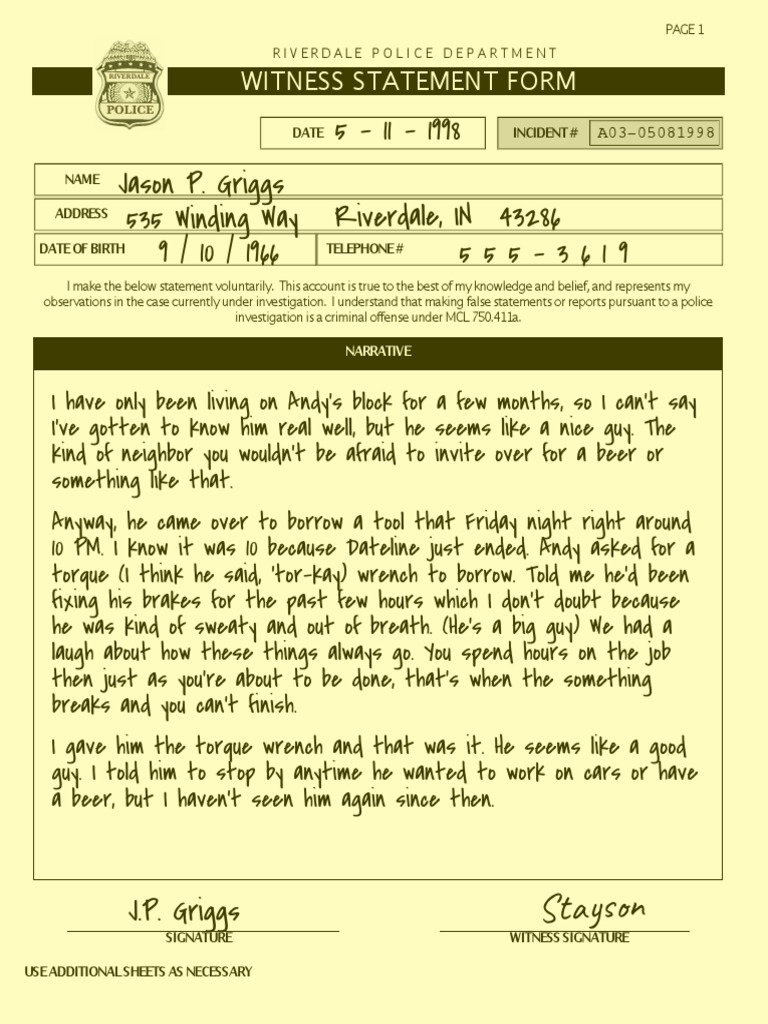 PAGE 1
RIVERDALE POLICE DEPARTMENT
WITNESS STATEMENT FORM
RIVERDALE
POLICE
DATE 5 - 11 - 1998 INCIDENT # A03-05081998
NAME Jason P. Griggs
ADDRESS 535 Winding Way Riverdale, IN 43286
DATE OF BIRTH 9 / 10 / 1966 TELEPHONE # 555-3619
I make the below statement voluntarily. This account is true to the best of my knowledge and belief, and represents my
observations in the case currently under investigation. I understand that making false statements or reports pursuant to a police
investigation is a criminal offense under MCL 750.411a.
NARRATIVE
I have only been living on Andy's block for a few months, so I can't say
I've gotten to know him real well, but he seems like a nice guy. The
kind of neighbor you wouldn't be afraid to invite over for a beer or
something like that.
Anyway, he came over to borrow a tool that Friday night right around
10 PM. I know it was 10 because Dateline just ended. Andy asked for a
torque (I think he said, 'tor-kay) wrench to borrow. Told me he'd been
fixing his brakes for the past few hours which I don't doubt because
he was kind of sweaty and out of breath. (He's a big guy) We had a
laugh about how these things always go. You spend hours on the job
then just as you're about to be done, that's when the something
breaks and you can't finish.
I gave him the torque wrench and that was it. He seems like a good
guy. I told him to stop by anytime he wanted to work on cars or have
a beer, but I haven't seen him again since then.
J.P. Griggs Stayson
SIGNATURE WITNESS SIGNATURE
USE ADDITIONAL SHEETS AS NECESSARY